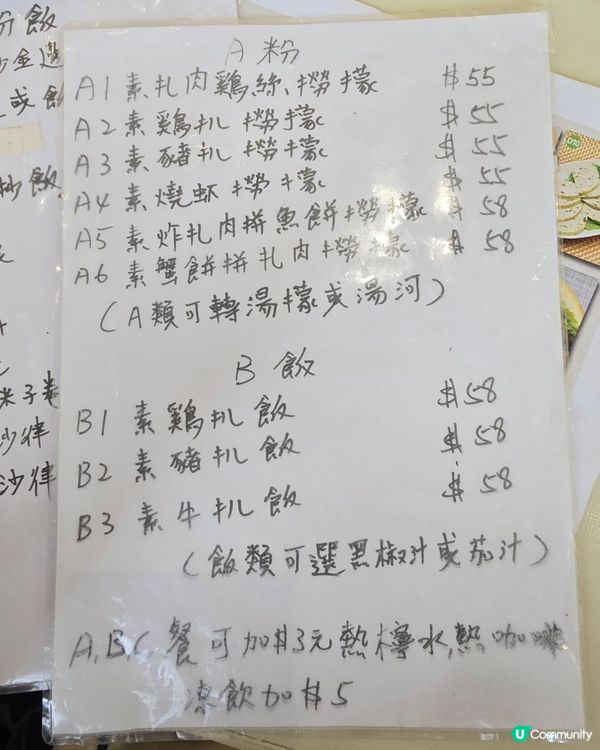 A 粉
A1 素扎肉鷄絲撈檬 $55
A2 素鷄扒撈檬 $55
A3 素豬扒撈檬 $55
A4 素燒蝦撈檬 $55
A5 素炸扎肉拼魚餅撈檬 $58
A6 素蟹餅拼扎肉撈檬 $58
(A類可轉湯檬或湯河)
B 飯
B1 素鷄扒飯 $58
B2 素豬扒飯 $58
B3 素牛扒飯 $58
(飯類可選黑椒汁或茄汁)
A,B,C 餐可加$3元熱檸水,熱咖啡
凍飲加$5
飯
米子卷
沙律
沙律
D10
U Community